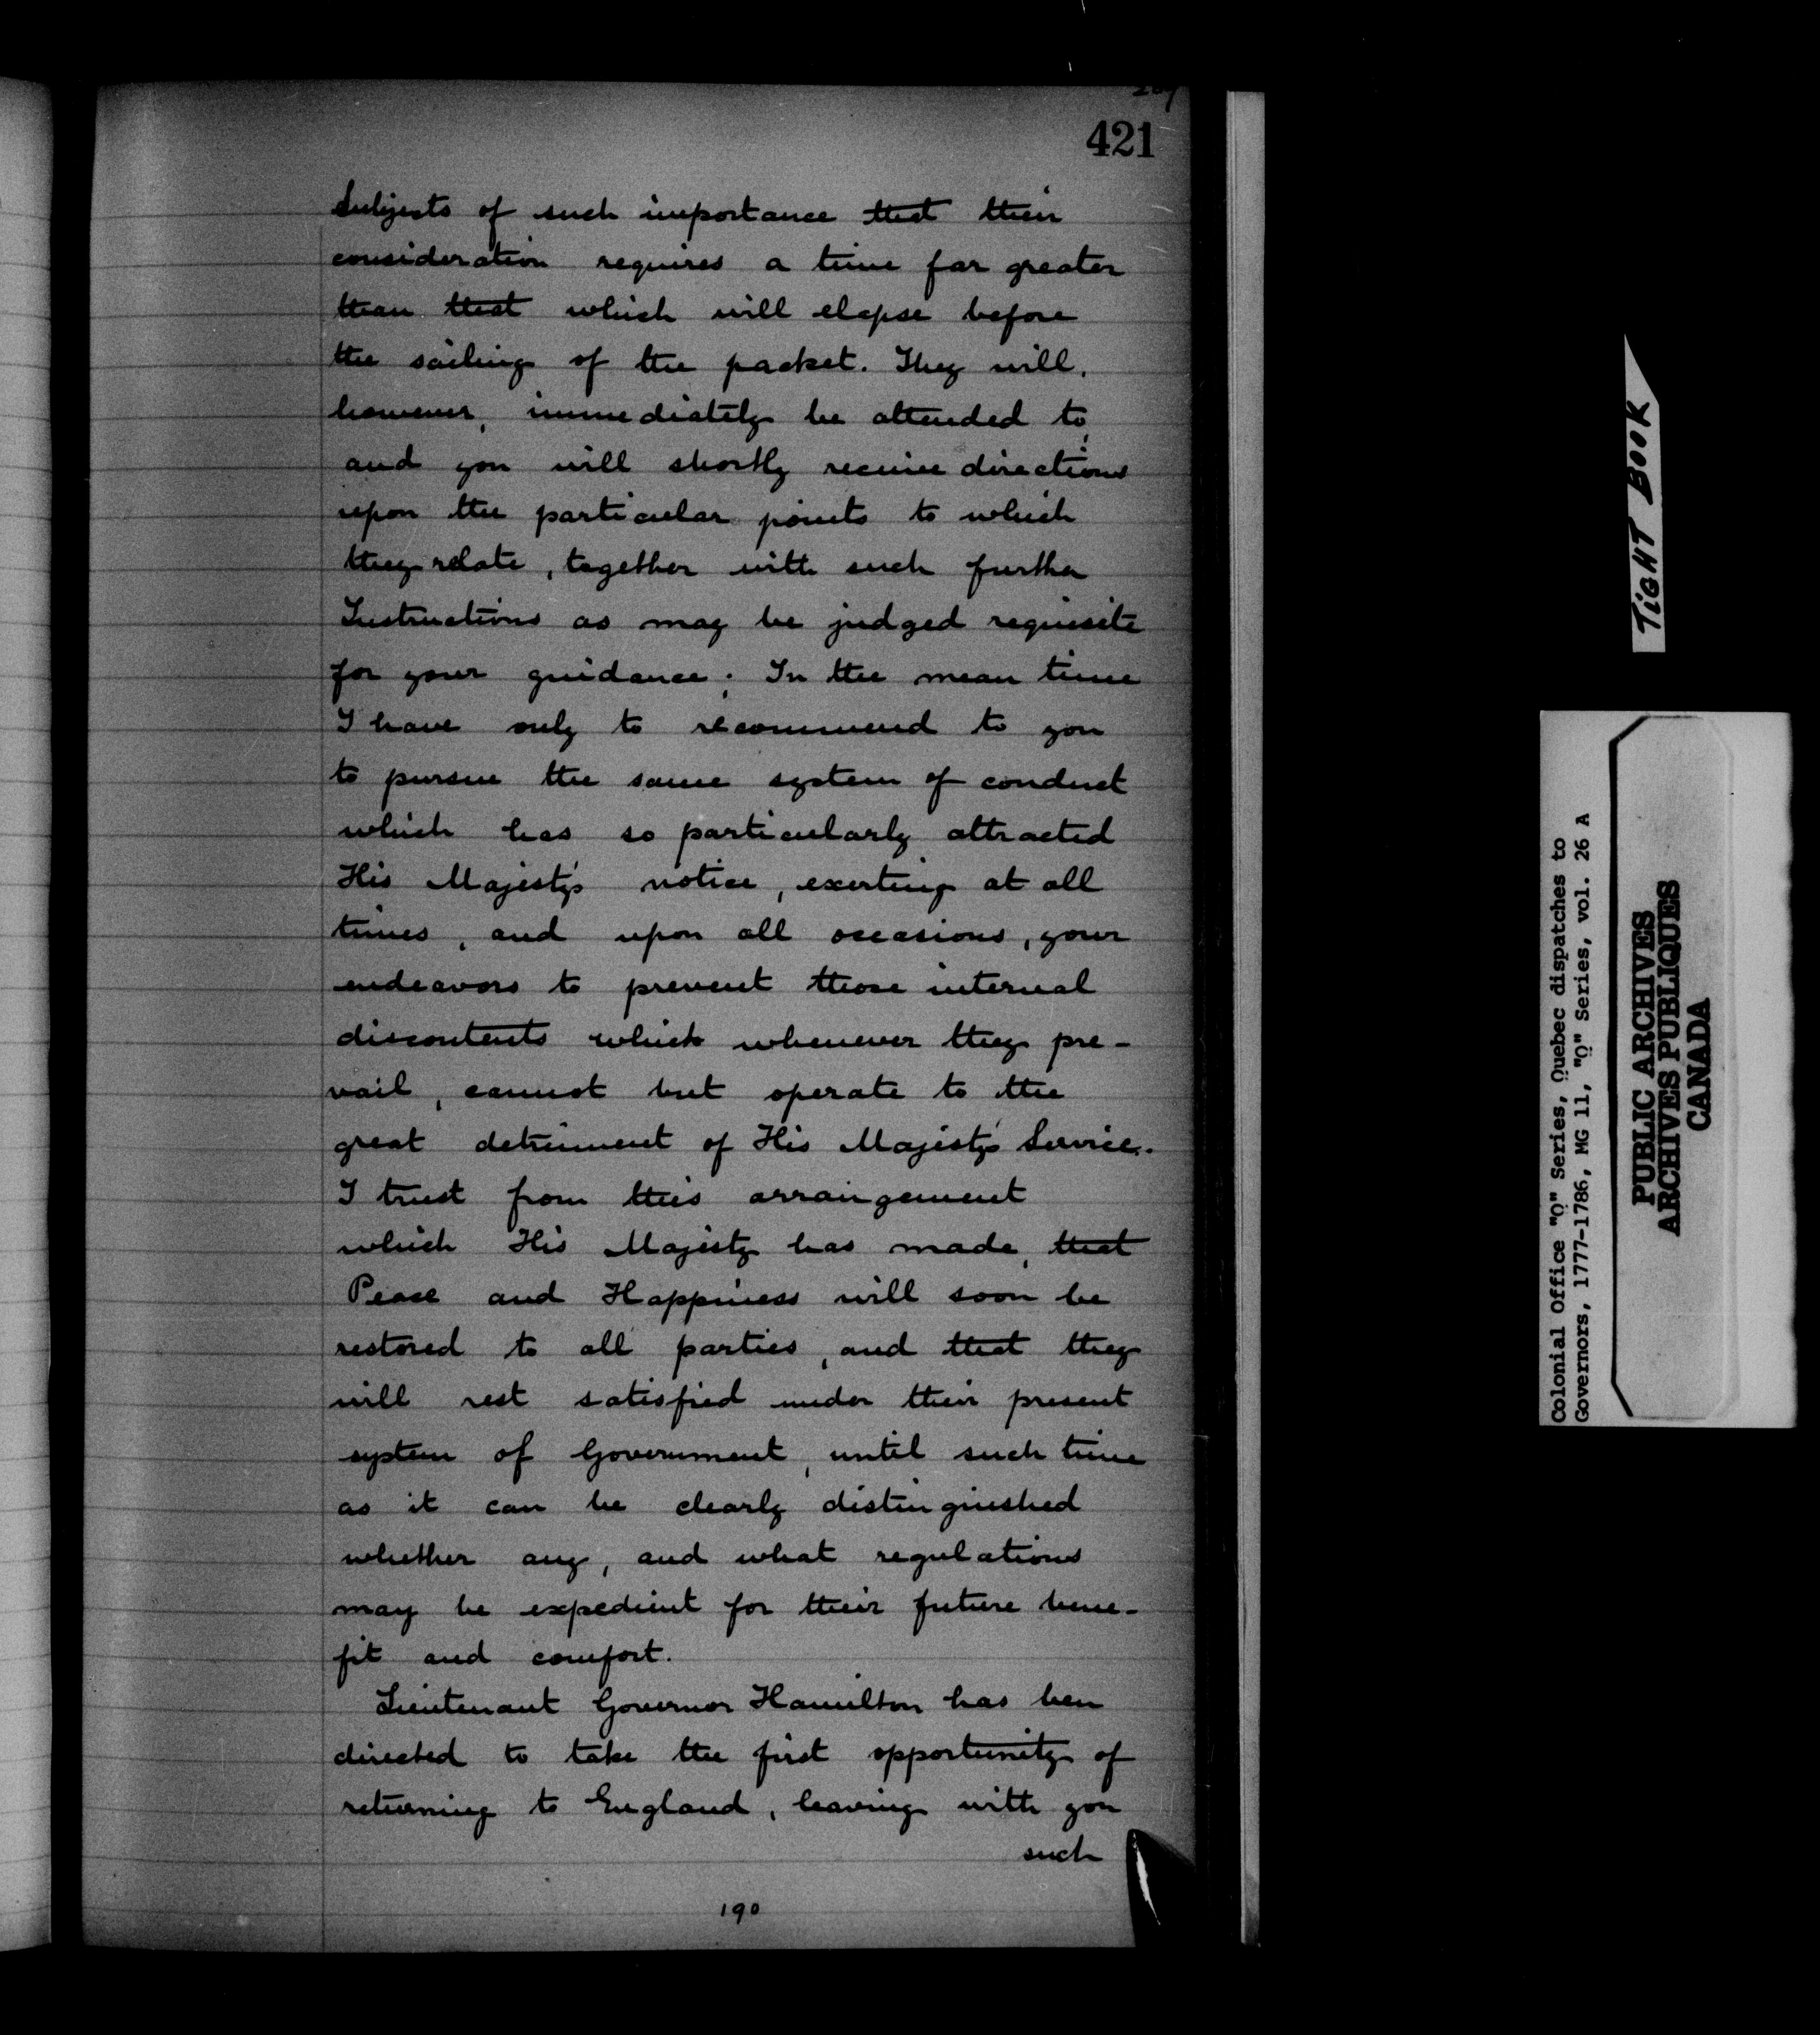 421
Subjects of such importance that their
consideration requires a time far greater
than that which will elapse before
the sailing of the packet. They will,
however, immediately be attended to,
and you will shortly receive directions
upon the particular points to which
they relate, together with such further
Instructions as may be judged requisite
for your guidance; In the mean time
I have only to recommend to you
to pursue the same system of conduct
which has so particularly attracted
His Majesty's notice, exerting at all
times, and upon all occasions, your
endeavors to prevent those internal
discontents which whenever they pre-
vail, cannot but operate to the
great detriment of His Majesty's Service.
I trust from this arrangement
which His Majesty has made, that
Peace and Happiness will soon be
restored to all parties, and that they
will rest satisfied under their present
system of Government, until such time
as it can be clearly distinguished
whether any, and what regulations
may be expedient for their future bene-
fit and comfort.
Lieutenant Governor Hamilton has been
directed to take the first opportunity of
returning to England, leaving with you
such
190
TIGHT BOOK
Colonial Office "Q" Series, Quebec dispatches to
Governors, 1777-1786, MG 11, "Q" Series, vol. 26 A
PUBLIC ARCHIVES
ARCHIVES PUBLIQUES
CANADA